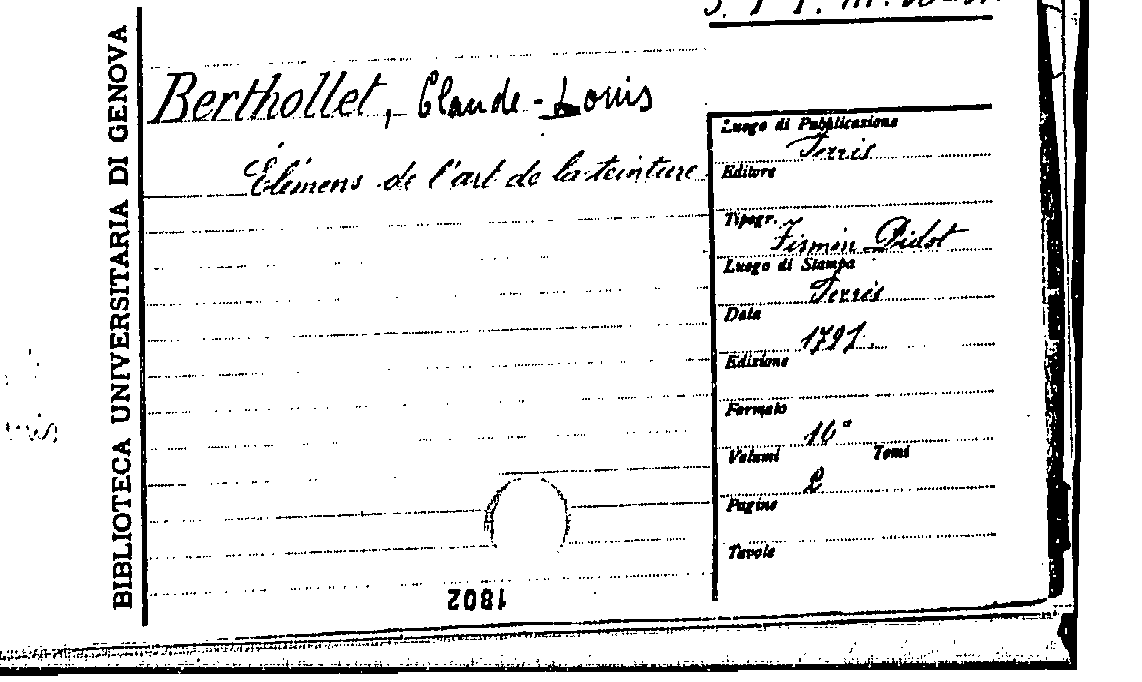 BIBLIOTECA UNIVERSITARIA DI GENOVA
Berthollet, Claude-Louis
Élémens de l'art de la teinture
Luogo di Pubblicazione
Editore
Tipogr.
Firmin Didot
Luogo di Stampa
Data
1791.
Edizione
Formato
16°
Volumi Tomi
2
Pagine
Tavole
1802